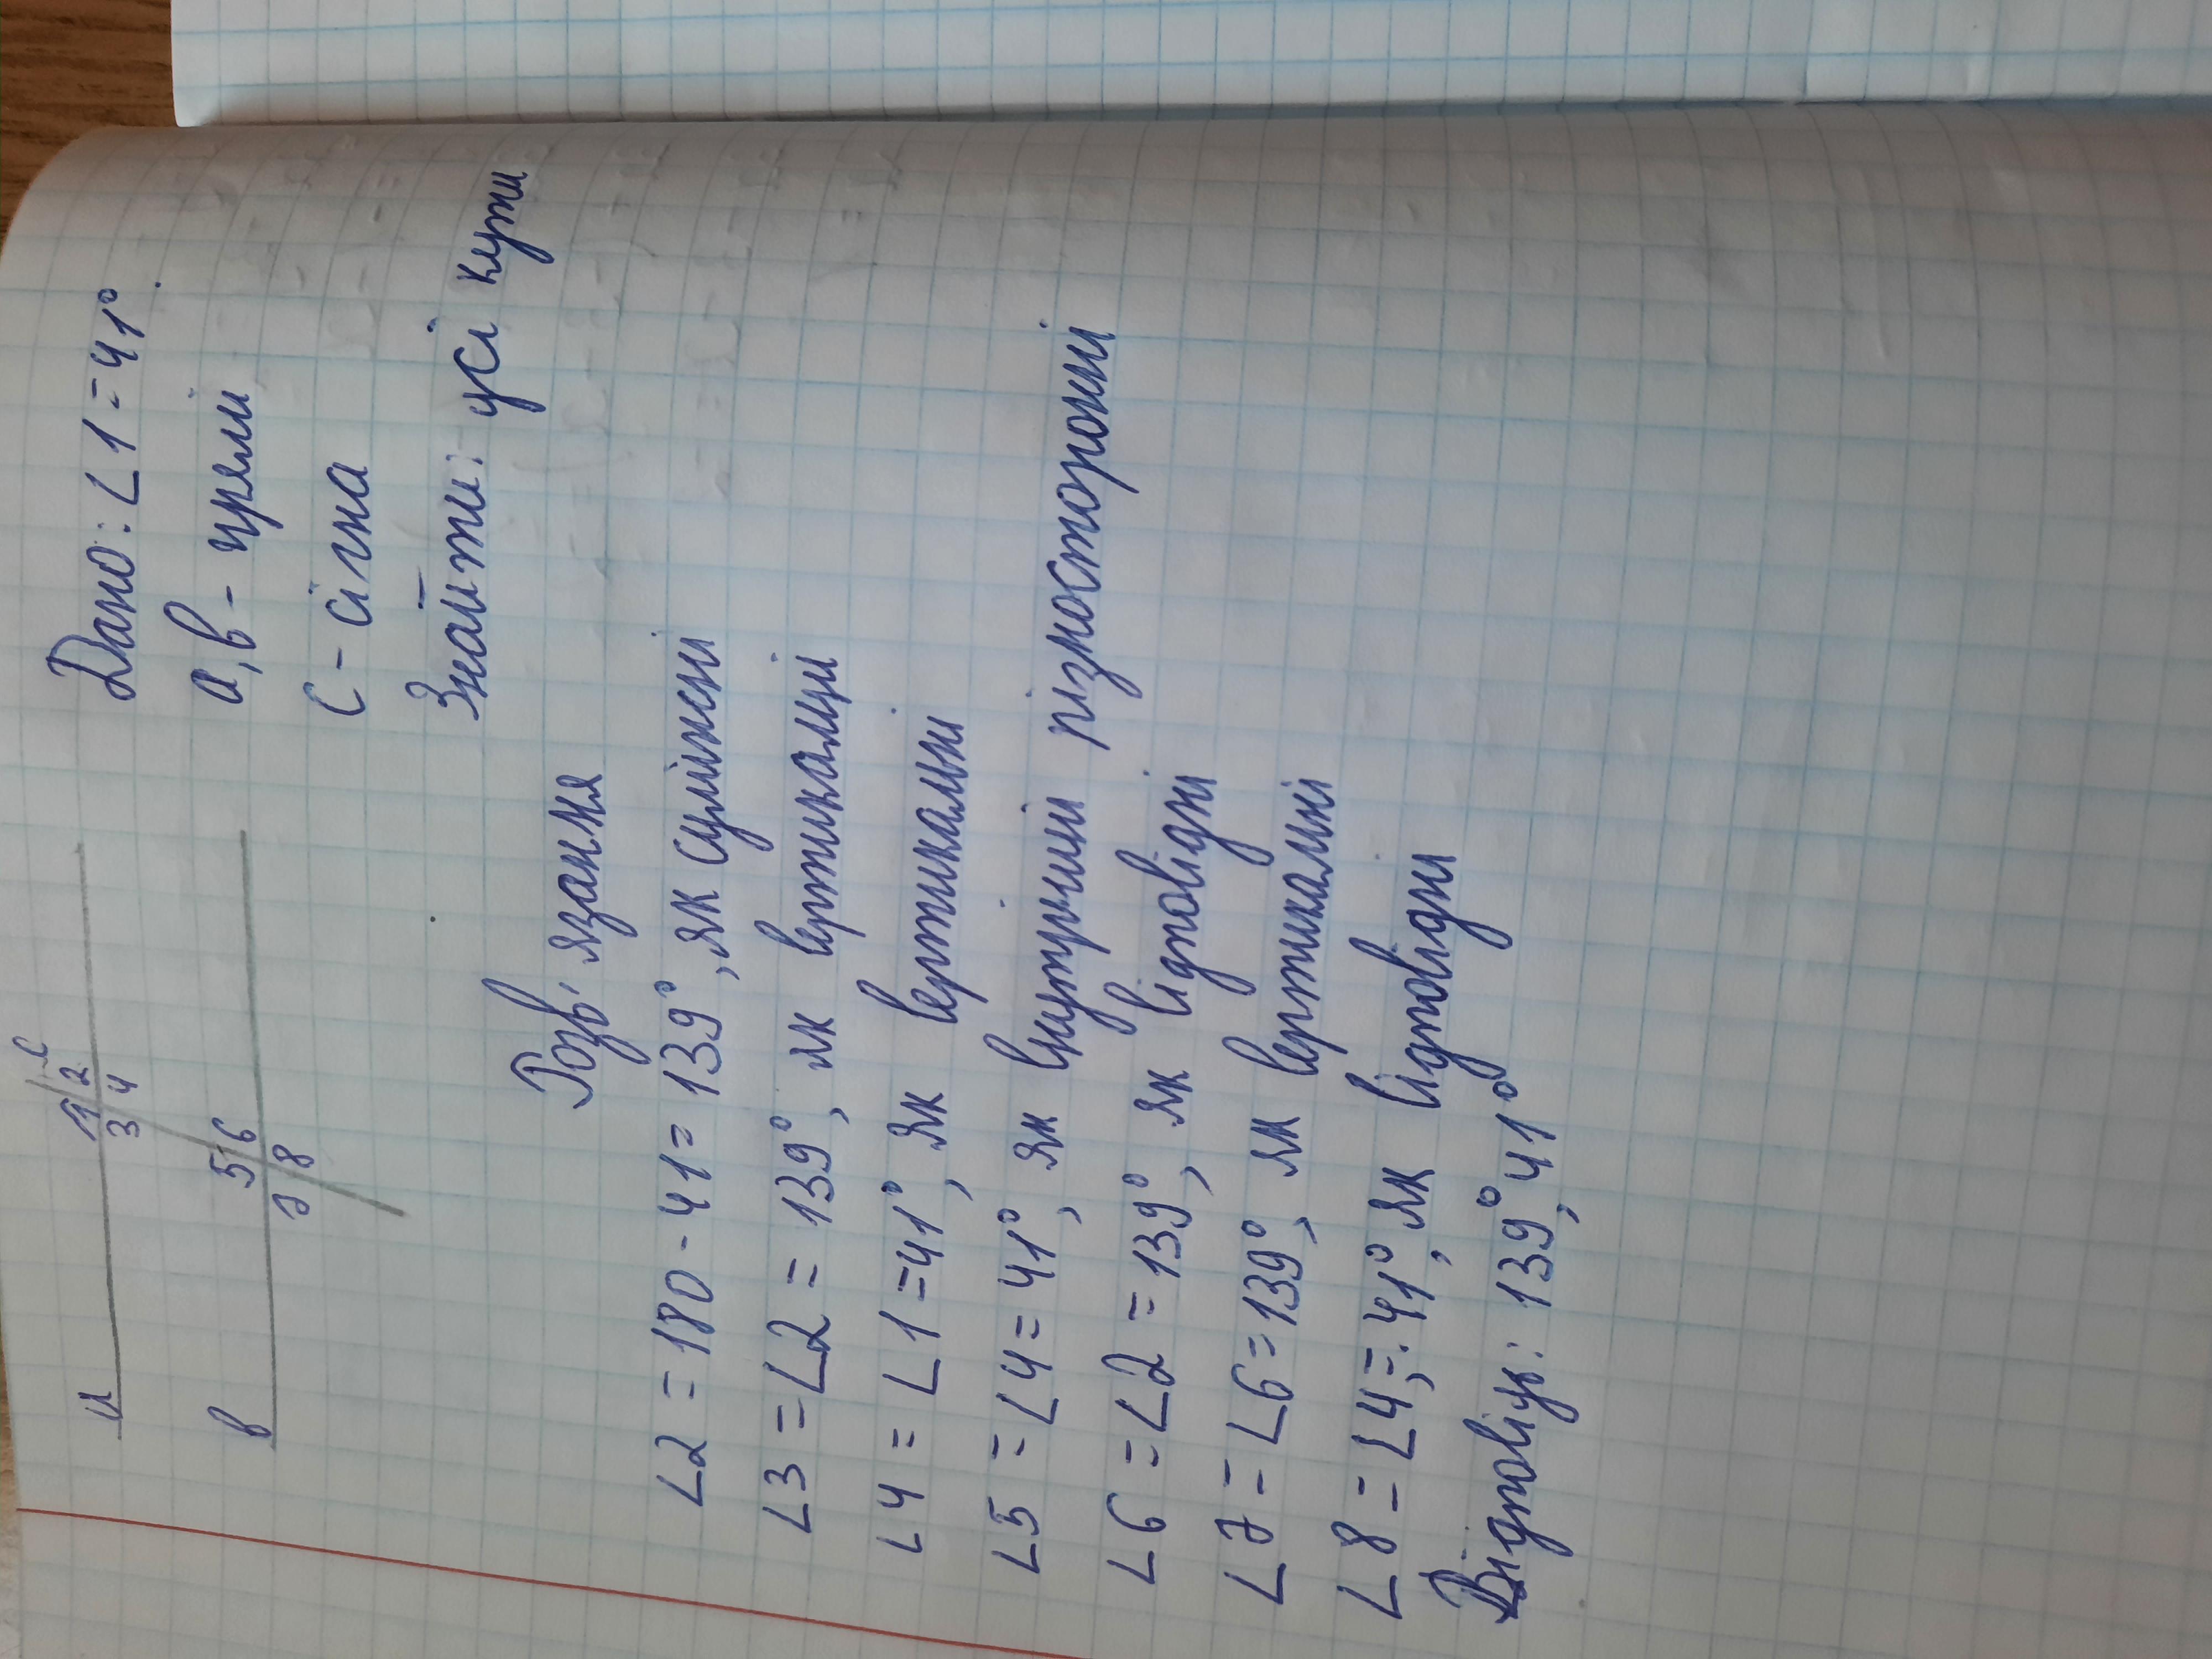 c
a 1 2
3 4
в 5 6
7 8
Дано: ∠1 = 41°
a, в - прямі
c - січна
Знайти: усі кути
Розв'язання
∠2 = 180 - 41 = 139°, як суміжні
∠3 = ∠2 = 139°, як вертикалці
∠4 = ∠1 = 41°, як вертикальні
∠5 = ∠4 = 41°, як внутрішні різносторонні
∠6 = ∠2 = 139°, як відповідні
∠7 = ∠6 = 139°, як вертикальні
∠8 = ∠4 = 41°, як відповідні
Відповідь: 139°, 41°